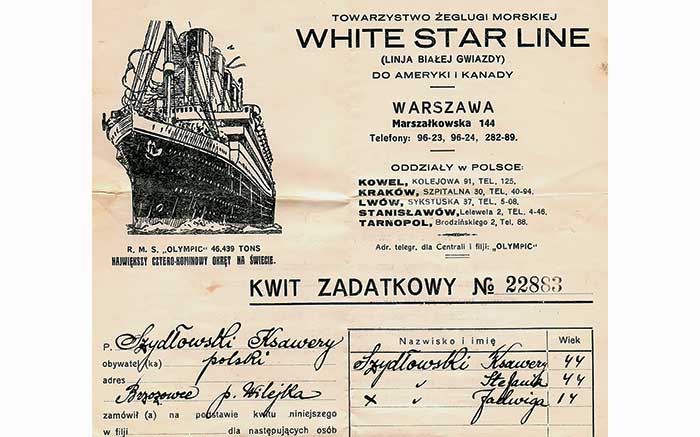 TOWARZYSTWO ŻEGLUGI MORSKIEJ
WHITE STAR LINE
(LINJA BIAŁEJ GWIAZDY)
DO AMERYKI i KANADY
WARSZAWA
Marszałkowska 144
Telefony: 96-23, 96-24, 282-89.
ODDZIAŁY w POLSCE:
KOWEL, KOLEJOWA 91, TEL, 125,
KRAKÓW, SZPITALNA 30, TEL, 40-94,
LWÓW, SYKSTUSKA 37, TEL, 5-08,
STANISŁAWÓW, Lelewela 2, TEL, 4-46,
TARNOPOL, Brodzińskiego 2, Tel, 88.
Adr. telegr. dla Centrali i filji: „OLYMPIC"
R. M. S. „OLYMPIC" 46.439 TONS
NAJWIĘKSZY CZTERO-KOMINOWY OKRĘT NA ŚWIECIE.
KWIT ZADATKOWY № 22883
P. Szydłowski Ksawery
obywatel (ka) polski
adres
Brzozowce p. Wilejka
zamówił (a) na podstawie kwitu niniejszego
w filji dla następujących osób
Nazwisko i imię Wiek
Szydłowski Ksawery 44
" Stefania 44
x " Jadwiga 14